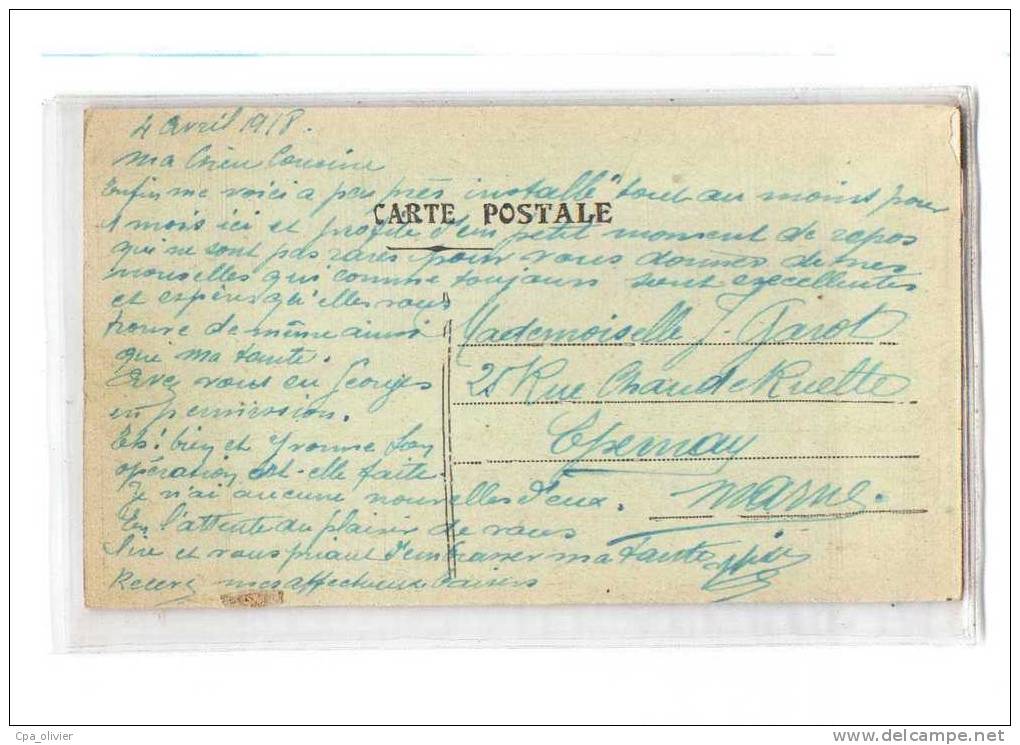 4 avril 1918.
ma Cousine
Enfin me voici a peu près installé tout au moins pour
CARTE POSTALE
1 mois ici et profite d'un petit moment de repos
qui ne sont pas rares pour vous donner de mes
nouvelles qui comme toujours sont excellentes
et espère qu'elles vous
trouve de même ainsi
que ma tante.
Avez vous eu Georges
in permission.
Eh! bien et Yvonne son
opération est-elle faite
Je n'ai aucune nouvelles d'eux.
En l'attente du plaisir de vous
lire et vous priant d'embrasser ma tante
Recevez mes affectueux baisers
Mademoiselle J. Garot
25 Rue Chaude Ruelle
Epernay
Marne.
Cpa_olivier
www.delcampe.net